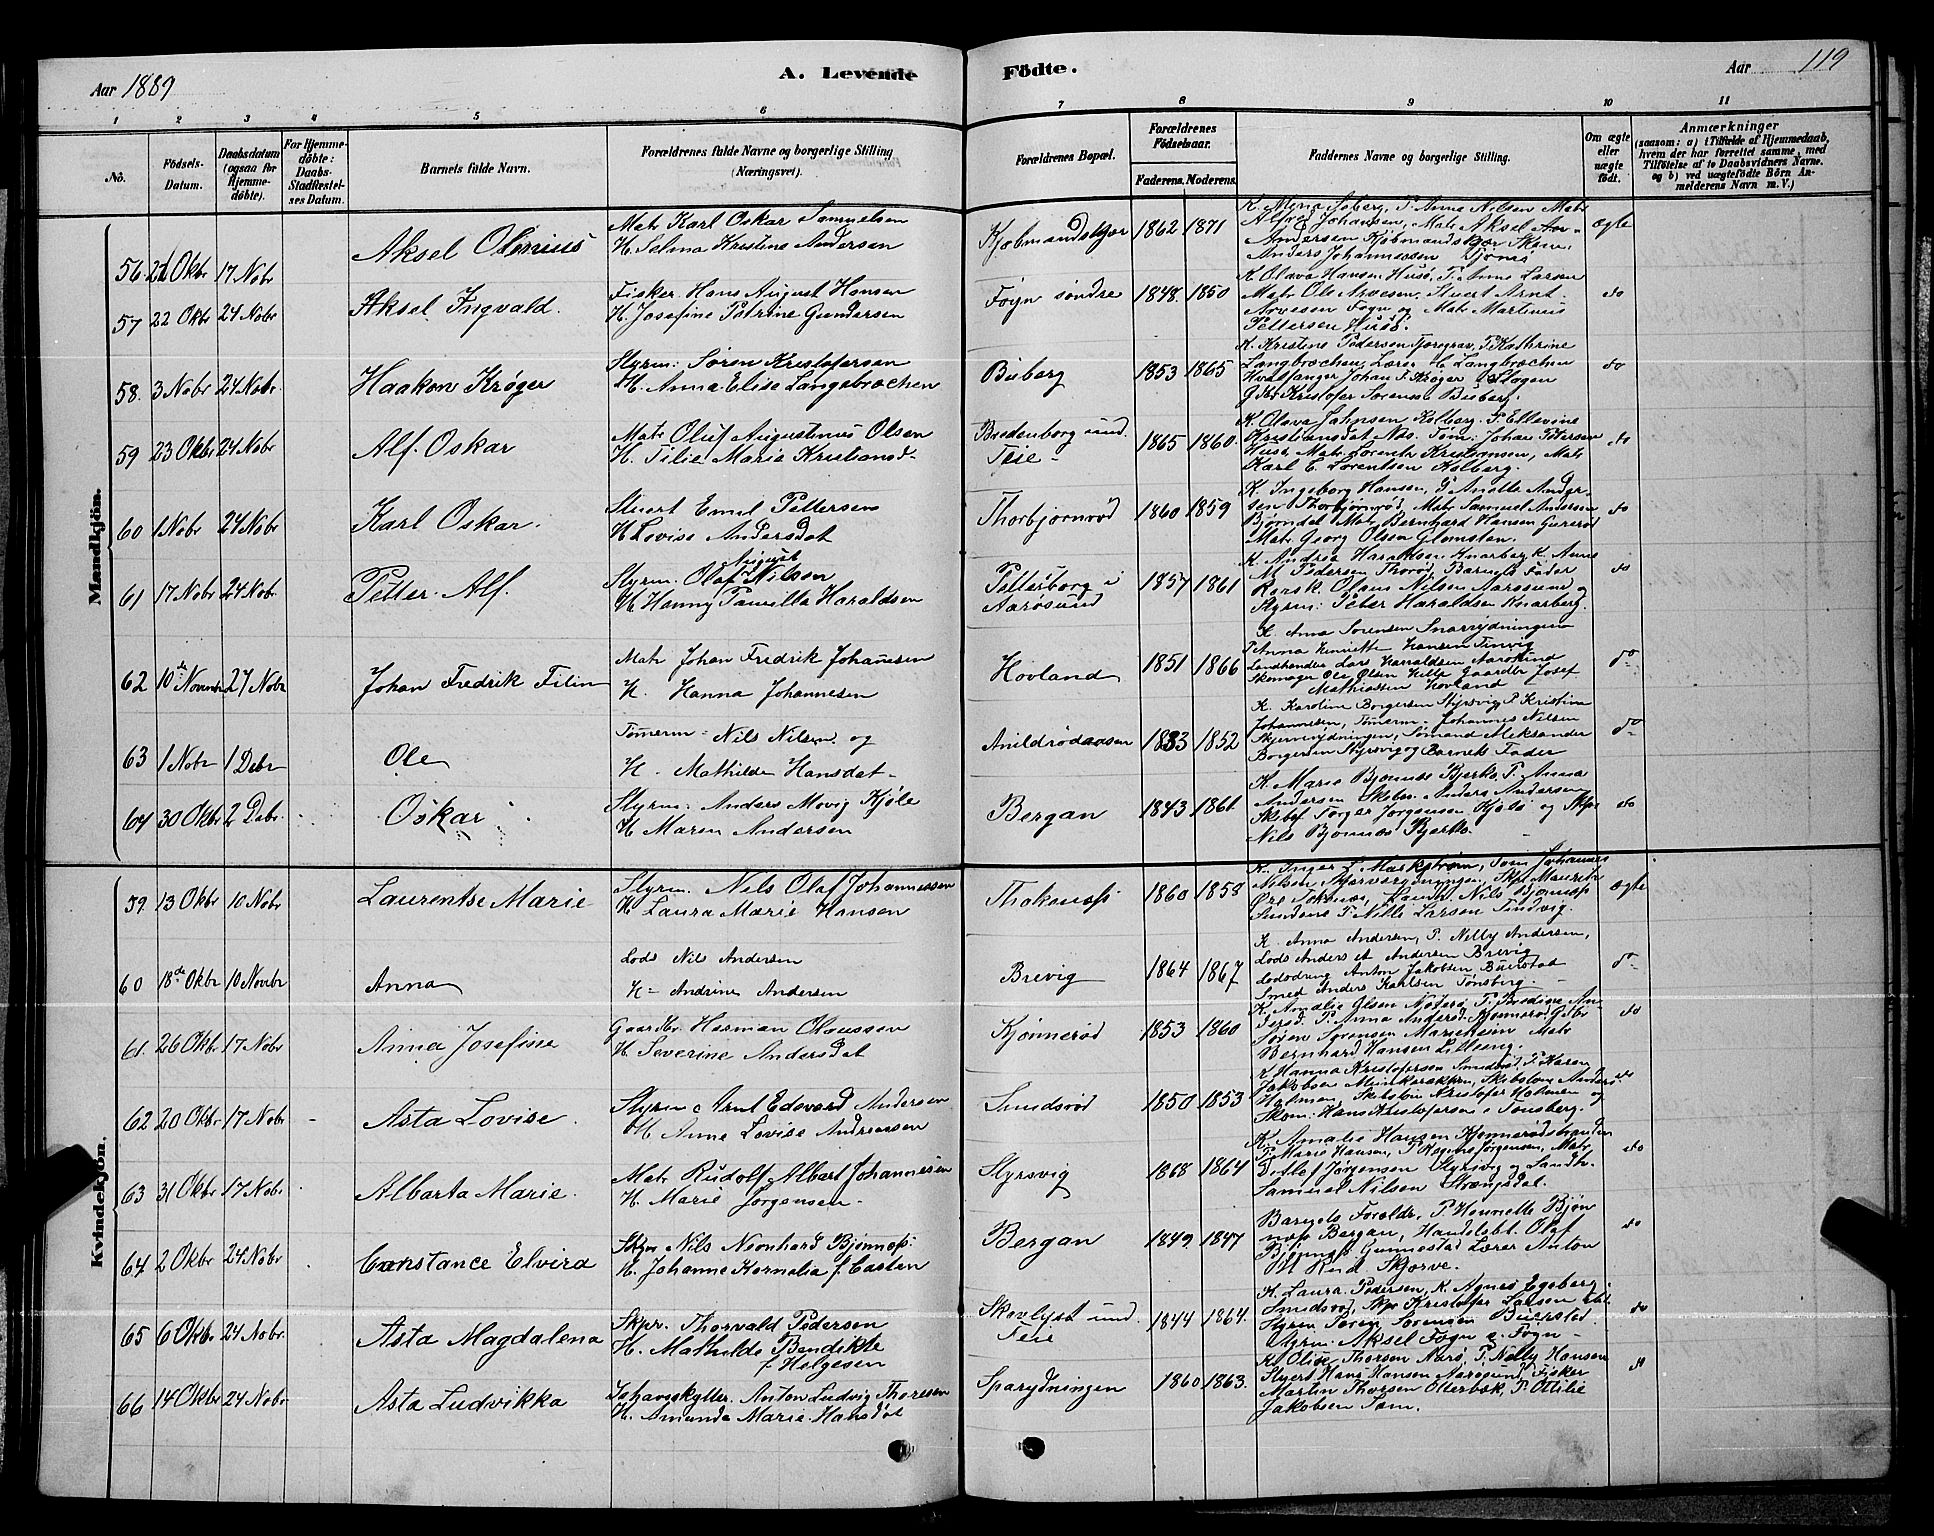 Aar 1889
A. Levende Födte.
Aar 119
1 2 3 4 5 6 7 8 9 10 11
No.
Födsels-Datum.
Daabsdatum (ogsaa for Hjemmedöbte).
For Hjemmedöbte: Daabs-Stadfæstelses Datum.
Barnets fulde Navn.
Forældrenes fulde Navne og borgerlige Stilling (Næringsvei).
Forældrenes Bopæl.
Forældrenes Födselsaar.
Faderens. Moderens.
Faddernes Navne og borgerlige Stilling.
Om ægte eller uægte födt.
Anmærkninger
(saasom: a) i Tilfælde af Hjemmedaab, hvem der har forrettet samme, med Tilföielse af to Daabsvidners Navne. og b) ved uægtefödte Börn Anmelderens Navn m. V.)
Mandkjön.
56 Okbr 17 Nobr Aksel
Matr Karl Oskar Samuelsen
H. Selma Kristine Andersen
Kjøbmandskjær 1862 1871
K. Mina Soberg, P. Anna Nilsen Matr
Alfred Johansen, Matr Aksel
Andersen Kjøbmandskjær
Anders Johannessen
ægte
57 22 Okbr 24 Nobr Aksel Ingvald.
Fisker Hans August Hansen
H. Josefine Petrine Gundersen
Føgn søndre 1848 1850
K. Olava Hansen Husø, P. Anna Larsen
Matr Ole Arvesen, Stuert Arnt
Arvesen Føgn og Matr Martinius
Pettersen Husø.
do
58. 3 Nobr 24 Nobr. Haakon Krøger
Styrm: Søren Kristofersen
H. Anna Elise Langebræchen
Buberg 1853 1865
K. Kristine Pedersen P. Kathrine
Langbræchen, Langbræchen
Hvalfanger Johan F. Krøger
Kristofer Sørensen Buberg.
do
59 23 Okbr 24 Nobr Alf. Oskar
Matr Oluf Augustinus Olsen
H. Tilie Marie Kristiansd-
Bredenborg und. Teie - 1865 1860
K. Olava Kolberg. P. Ellevine
Kristiansdat Næs. Tøm: Johan Petersen
Husø, Matr Lorentz Kristiansen, Matr
Karl E. Lorentsen Kolberg.
do
60 1 Nobr 24 Nobr Karl Oskar.
Stuert Emil Pettersen
H. Lovise Andersdat
Thorbjørnrød 1860 1859
K. Ingeborg Hansen, P. Anette
Thorbjørnrød Matr Samuel Andersen
Bjørndal Matr Bernhard Hansen
Matr Georg Olsen Glomsten.
do
61 17 Nobr 24 Nobr. Petter. Alf.
August
Styrm: Olaf Nilsen
H. Hanny Pamilla Haraldsen
Petterborg i Aarøsund 1857 1861
K. Andrea Haraldsen Knarberg K. Anne
M. Pedersen Thorød, Barnets Fader
Olaus Nilsen Aarøsund og
Styrm: Peter Haraldsen Knarberg.
do
62 10de Novemb 27 Nobr Johan Fredrik
Matr Johan Fredrik Johanesen
H. Hanna Johannesen
Hovland 1851 1866
K. Anna Sørensen Snarrydningen
P. Anna Henriette Hansen Tinvig
Landhandler Lars Harraldsen Aarøsund
Skomager Ole Olsen Gaardbr Josef
Mathiassen Hovland
do
63 1 Nobr 1 Debr Ole
Tømerm- Nils Nilsen og
H- Mathilde Hansdat-
Anildrødaasen 1852
K. Karoline Borgersen Styrsvig P. Kristina
Johannesen, Tømerm- Johannes Nilsen
Skjerverydningen, Sømand Aleksander
Borgersen Styrsvig og Barnets Fader
do
64 30 Okbr 2 Debr. Oskar
Styrm: Anders Movig Kjøle
H. Maren Andersen
Bergan 1843 1861.
K. Marie Bjonnes Bjerkø P. Anna
Andersen Anders Andersen
Torger Jørgensen Kjøle og Skpr
Nils Bjonnes Bjerkø.
do
Kvindekjön.
59. 13 Okbr 10 Nobr Laurentse Marie
Styrm. Nils Olaf Johannessen
H. Laura Marie Hansen
1860 1858
K. Inger L. Markstrøm, Tøm Johannes
Nilsen Skpr Mauritz
Nils Bjonnes
Larsen Tindvig.
ægte
60 18de Okbr 10 Novbr Anna
Lods Nils Andersen
H- Andrine Andersen
Brevig 1864 1867
K. Anna Andersen, P. Nelly Andersen,
Lods Anders Andersen Brevig
Lodsdreng Anton Jakobsen Buerstad
Smed Anders Karlsen Tønsberg.-
do
61. 26 Okbr. 17 Nobr Anna Josefine
Gaardbr. Herman Olaussen
H. Severine Andersdat
Kjønnerød 1853 1860
K. Amalie Olsen Nøterø, P. Bredine
P. Anna Anderød Kjønnerød Gdbr
Søren Sørensen Marieheim Matr
Bernhard Hansen Lilleeng.
do
62 20 Okbr 17 Nobr - Asta Lovise.
Styrm: Arnt Edevard Andersen
H. Anne Lovise Andreassen
Smidsrød 1850 1853
K. Hanna Kristofersen Smidsrød, P. Karen
Jakobsen Skibstøm Anders
Holmen, Skibstøm Kristofer Holmen og
Skom: Hans Kristofersen i Tønsberg.
do
63 31 Okbr 17 Nobr. Albarta Marie.
Matr Rudolf Albart Johannesen
H. Marie Jorgensen-
Styrsvig 1868 1864
K. Amalie Hansen Kjonnerødstranden
P. Marie Hansen, P. Hagine Jørgensen, Matr
Ditlef Jørgensen Styrsvig og Landh.
Samuel Nilsen Strengsdal.
do
64 2 Okbr 24 Nobr Constance Elvira
Skpr Nils Neonhard Bjønnes
H. Johanne Kornelia f. Casten
Bergan 1849. 1847
Barnets Foreldr, P. Henriette Bjøn
nes Bergan, Handelsbt. Olaf
Bjønnes Gunnestad Lærer Anton
H Rud Skjerve.
do
65 6 Okbr. 24 Nobr. Asta Magdalena
Skpr. Thorvald Pedersen
H. Mathilde Bendikte
f Helgesen
Skovlyst und. Teie 1844 1864.
K. Laura Pedersen, K. Agnes Egeberg
Smidsrød, Skpr Kristoffer Larsen
Styrm Søren Sørensen Buerstad
Styrm: Aksel Føgn a. Føgn-
do
66 14 Okbr 24 Nobr Asta Ludvikka
Ishavsskytter. Anton Ludvig Thoresen
H. Amunda Marie Hansdat
Sparydningen 1860 1863.
K. Olise Thorsen Narø, P. Nelly Hansen
Styert Hans Hansen Aarøsund, Fisker
Martin Thorsen Otterbæk, P. Ottilie
Jakobsen Tøm.
do